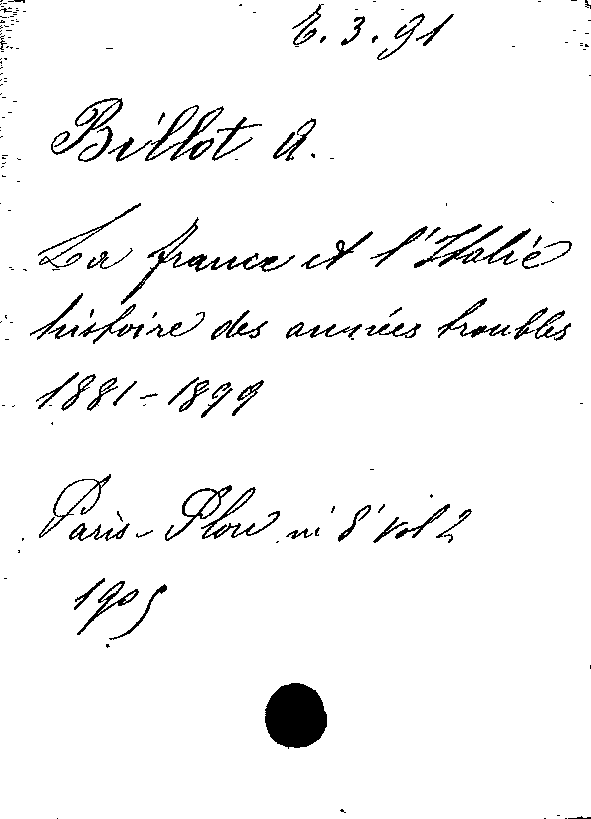 E.3.91
Billot A.
La france et l'Italie
histoire des années troubles
1881-1899
Paris-Plon in 8° vol 2
1905